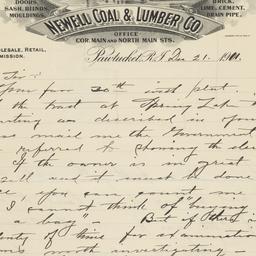 DOORS,
SASH, BLINDS,
MOULDINGS,
NEWELL COAL & LUMBER CO.
BRICK,
LIME, CEMENT,
DRAIN PIPE,
OFFICE
COR. MAIN AND NORTH MAIN STS.
WHOLESALE, RETAIL,
COMMISSION.
Pawtucket, R.I. Dec 21 - 1901.
Sir :
your favor 20th inst plat
the tract at Spring Lake
as described in your
mail on the Government
referred to showing the
If the owner is in great
sell and it must be done
you can count me
I cannot think of "buying
a bag" - But if there is
plenty of time for examination
worth investigating -